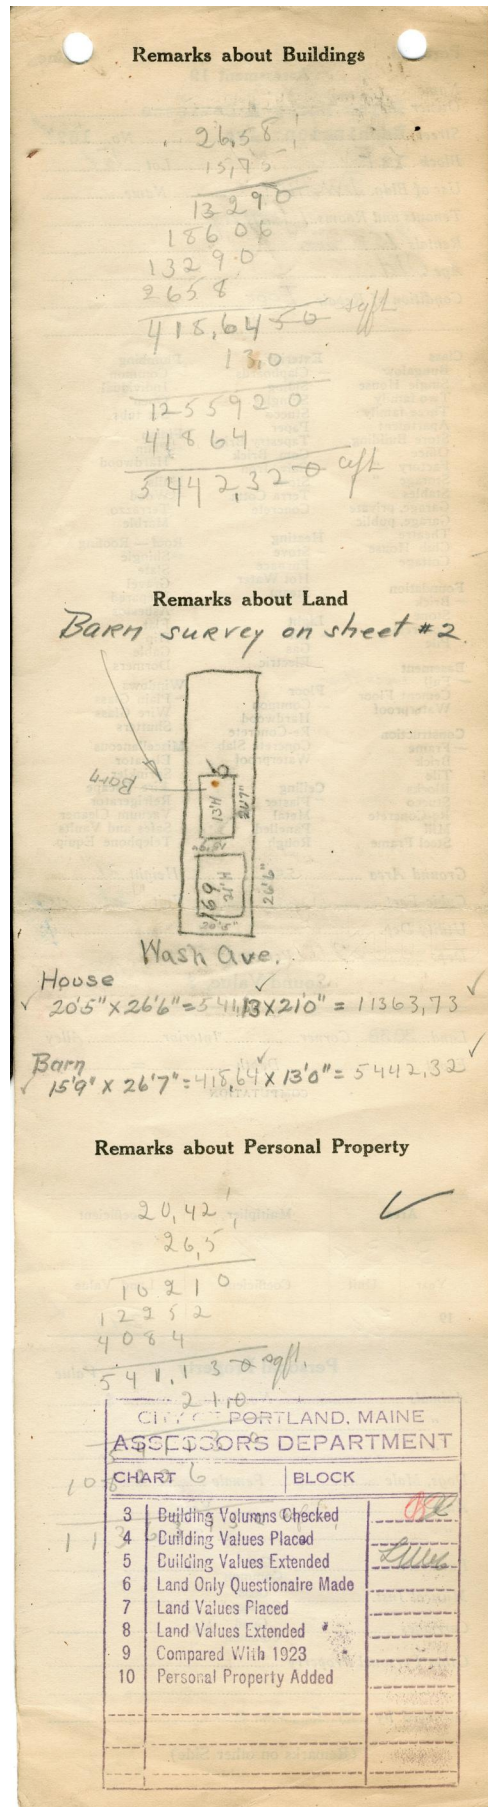 Remarks about Buildings
26,58'
15,75
13290
18606
13290
2658
418,6450 sqft
13,0
1255920
41864
5442,320 cft
Remarks about Land
Barn survey on sheet #2
Barn
13'H
26'7"
169
21'H
26'6"
20'5"
Wash Ave.
House
20'5" X 26'6" = 541,13 X 21'0" = 11363,73
Barn
15'9" X 26'7" = 418,64 X 13'0" = 5442,32
Remarks about Personal Property
20,42'
26,5
10210
12252
4084
541,130 sqft.
21,0
CITY OF PORTLAND, MAINE
ASSESSORS DEPARTMENT
CHART BLOCK
3 Building Volumns Checked
4 Building Values Placed
5 Building Values Extended
6 Land Only Questionaire Made
7 Land Values Placed
8 Land Values Extended
9 Compared With 1923
10 Personal Property Added